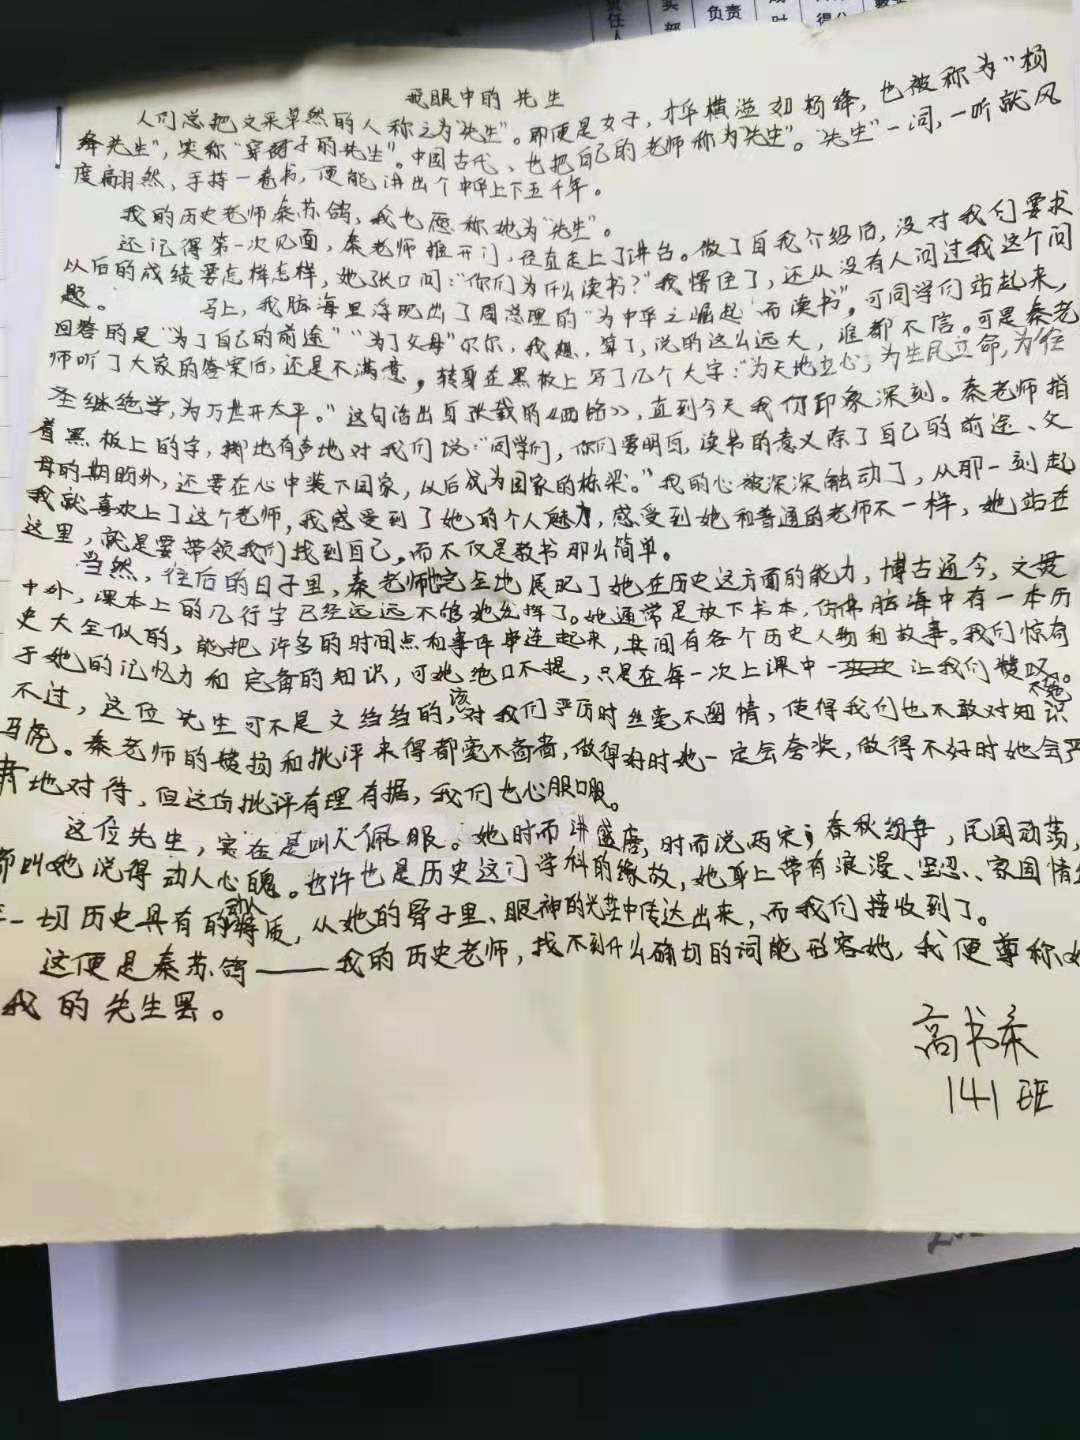 责任人
部
负责
时
我眼中的先生
人们总把文采卓然的人称之为"先生"。即便是女子,才华横溢如杨绛,也被称为"杨
绛先生",笑称"穿裙子的先生"。中国古代、也把自己的老师称为"先生"。"先生"一词,一听就风
度翩然、手持一卷书,便能讲出个中华上下五千年。
我的历史老师秦苏鸽,我也愿称她为"先生"。
还记得第一次见面,秦老师推开门,径直走上了讲台。做了自我介绍后,没对我们要求
以后的成绩要怎样怎样,她张口问:"你们为什么读书?"我愣住了,还从没有人问过我这个问
题。 马上,我脑海里浮现出了周总理的"为中华之崛起而读书"。可同学们站起来,
回答的是"为了自己的前途""为了父母"尔尔,我想,算了,说的这么远大,谁都不信。可是秦老
师听了大家的答案后,还是不满意,转身在黑板上写了几个大字:"为天地立心,为生民立命,为往
圣继绝学,为万世开太平。"这句话出自张载的《西铭》,直到今天我仍印象深刻。秦老师指
着黑板上的字,掷地有声地对我们说:"同学们,你们要明白,读书的意义除了自己的前途、父
母的期盼外,还要在心中装下国家,以后成为国家的栋梁。"我的心被深深触动了,从那一刻起
我就喜欢上了这个老师,我感受到了她的个人魅力,感受到她和普通的老师不一样,她站在
这里,就是要带领我们找到自己,而不仅是教书那么简单。
当然,往后的日子里,秦老师完全地展现了她在历史这方面的能力,博古通今,文贯
中外,课本上的几行字已经远远不够她发挥了。她通常是放下书本,仿佛脑海中有一本历
史大全似的,能把许多的时间点和事件串连起来,其间有各个历史人物和故事。我们惊奇
于她的记忆力和完备的知识,可她绝口不提,只是在每一次上课中一让我们赞叹。
不过,这位先生可不是文绉绉的,该对我们严厉时丝毫不留情,使得我们也不敢对知识
马虎。秦老师的赞扬和批评来得都毫不吝啬,做得好时她一定会夸奖,做得不好时她会严
肃地对待,但这份批评有理有据,我们也心服口服。
这位先生,实在是叫人佩服。她时而讲盛唐,时而说两宋;春秋纷争,民国动荡,
都叫她说得动人心魄。也许也是历史这门学科的缘故,她身上带有浪漫、坚忍、家国情
一切历史具有的动人特质,从她的骨子里、眼神的光芒中传达出来,而我们接收到了。
这便是秦苏鸽——我的历史老师,找不到什么确切的词能形容她,我便尊称她
我的先生罢。
高书
141班